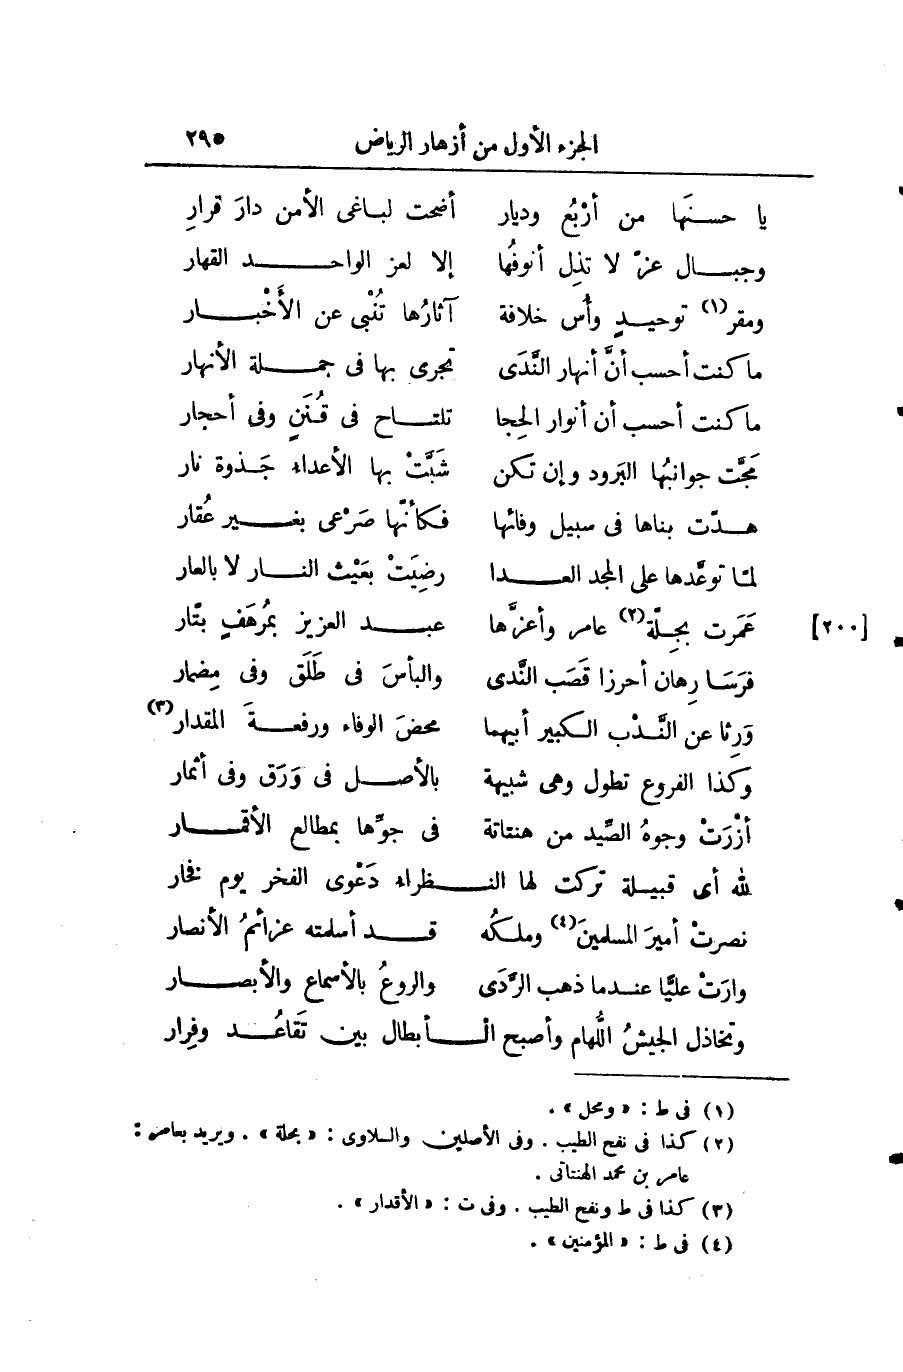 الجزء الأول من أزهار الرياض ٢٩٥
يا حسنَها من أرْبُع وديار أضحت لباغى الأمن دارَ قرارِ
وجبال عزّ لا تذِل أنوفُها إلا لعز الواحد القهار
ومقر(١) توحيدٍ وأُس خلافة آثارُها تُنْبِى عن الأَخْبار
ما كنت أحسب أنَّ أنهار النَّدَى تجرى بها فى جملة الأنهار
ما كنت أحسب أن أنوار الحِجا تلتاح فى قُنَنٍ وفى أحجار
مَجَّت جوانبُها البَرود وإن تكن شَبَّتْ بها الأعداء جَذوة نار
هدّت بناها فى سبيل وفائها فكأنّها صَرْعى بغير عُقار
لمّا توعَّدها على المجد العدا رضِيَتْ بعَيْث النار لا بالعار
عَمَرت بجِلّة(٢) عامر وأعزَّها عبد العزيز بمُرهَفٍ بتّار
[٢٠٠]
فرَسَا رِهان أحرزا قَصَب النَّدى والبأسَ فى طَلَق وفى مِضمار
وَرِثا عن النَّدْب الكبير أبيهما محضَ الوفاء ورفعةَ المقدار(٣)
وكذا الفروع تطول وهى شبيهة بالأصل فى وَرَق وفى أثمار
أزْرَتْ وجوهُ الصِّيد من هنتاتة فى جوّها بمطالع الأقمار
لله أى قبيلة تركت لها النظراء دَعْوى الفخر يوم فخار
نصرتْ أميرَ المسلمينَ(٤) وملكُه قد أسلمته عزائمُ الأنصار
وارَتْ عليًّا عندما ذهب الرَّدَى والروعُ بالأسماع والأبصار
وتخاذل الجيشُ اللُّهام وأصبح الـأبطال بين تَقاعُد وفِرار
(١) فى ط : « ومحل » .
(٢) كذا فى نفح الطيب . وفى الأصلين والسلاوى : « بحلة » . ويريد بعامر :
عامر بن محمد الهنتاتى .
(٣) كذا فى ط ونفح الطيب . وفى ت : « الأقدار » .
(٤) فى ط : « المؤمنين » .